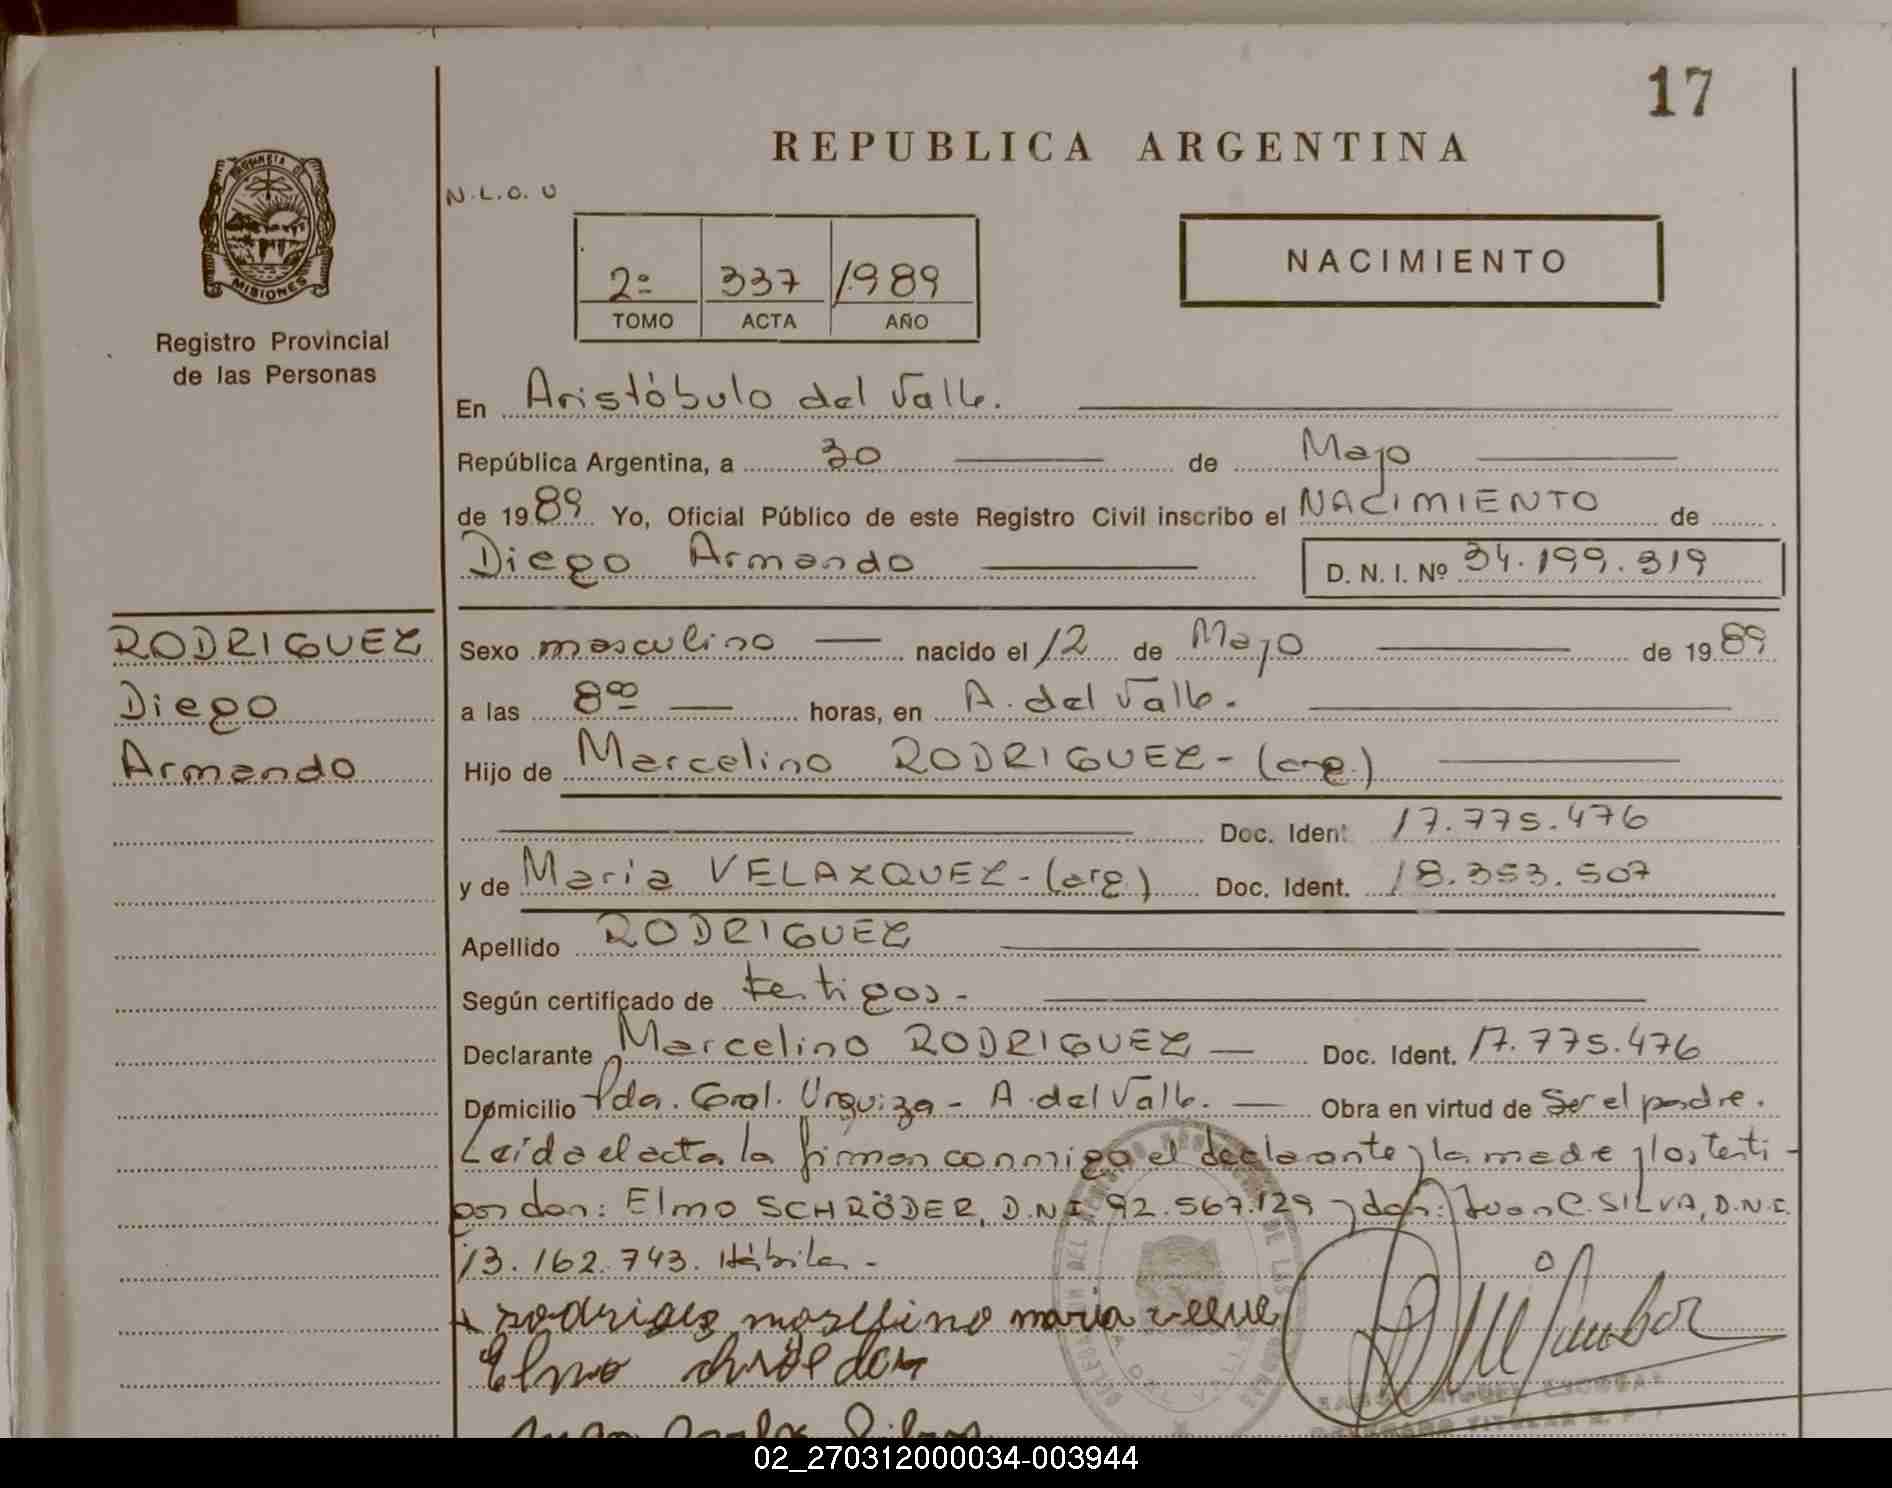 17
REPUBLICA ARGENTINA
N.L.O.U
PROVINCIA DE
MISIONES
Registro Provincial
de las Personas
2º 337 1989
TOMO ACTA AÑO
NACIMIENTO
En Aristóbulo del Valle.
República Argentina, a 30 de Mayo
de 1989 Yo, Oficial Público de este Registro Civil inscribo el NACIMIENTO de
Diego Armando D. N. I. Nº 34.199.319
RODRIGUEZ
Diego
Armando
Sexo masculino nacido el 12 de Mayo de 1989
a las 8⁰⁰ horas, en A. del Valle.
Hijo de Marcelino RODRIGUEZ - (arg.)
Doc. Ident 17.775.476
y de Maria VELAZQUEZ - (arg.) Doc. Ident. 18.353.507
Apellido RODRIGUEZ
Según certificado de testigos -
Declarante Marcelino RODRIGUEZ Doc. Ident. 17.775.476
Domicilio Pda. Gral. Urquiza - A. del Valle. Obra en virtud de Ser el padre.
Leída el acta la firman conmigo el declarante y la madre y los testi-
gos don: Elmo SCHRÖDER, D.N.I. 92.567.129 y don: Juan C. SILVA, D.N.I.
13.162.743. Hábiles -
maria
Elmo
02_270312000034-003944